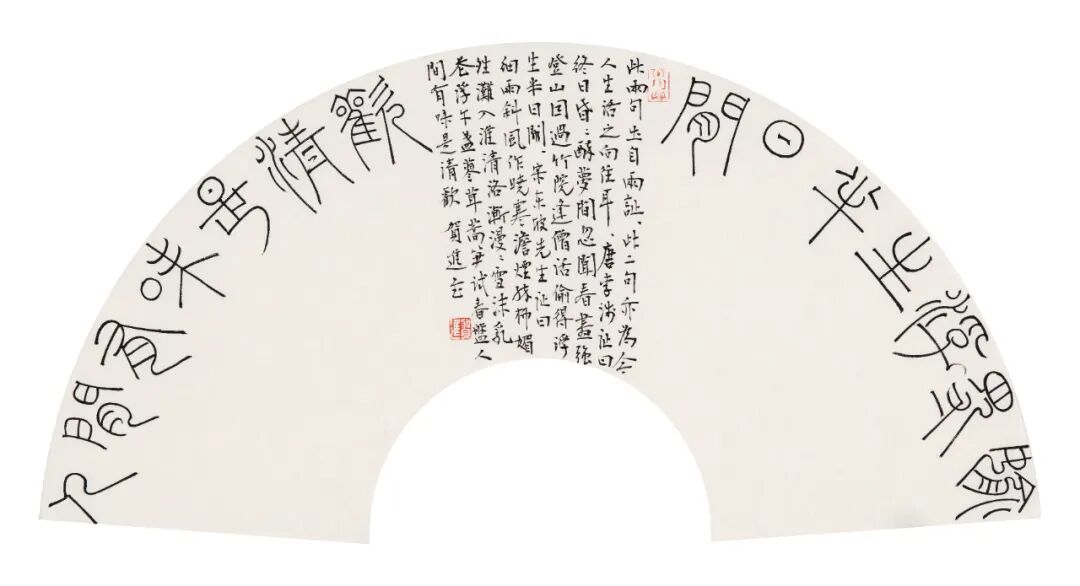 偷得浮生半日閒
此兩句出自兩詩、此二句亦為今
人生活之向往耳、唐李涉詩曰
終日昏〻醉夢間忽聞春盡強
登山因過竹院逢僧話偷得浮
生半日閒、宋東坡先生詩曰
細雨斜風作曉寒澹煙疏柳媚
晴灘入淮清洛漸漫〻雪沫乳
花浮午盞蓼茸蒿筍試春盤人
間有味是清歡 賀進
人間有味是清歡